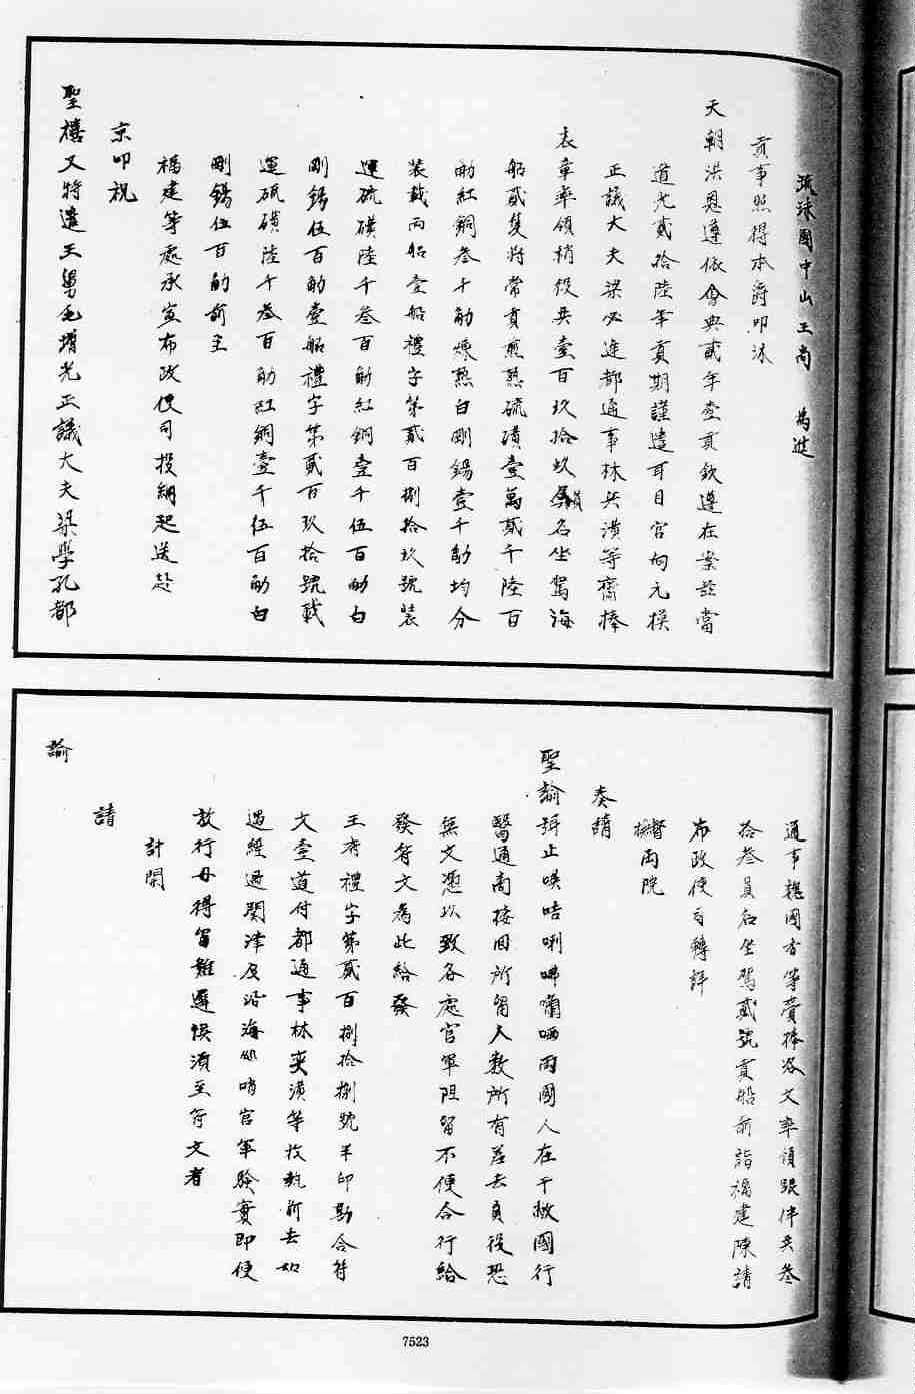 琉球國中山王尚　為進
貢事照得本爵叩沐
天朝洪恩遵依會典貳年壹貢欽遵在案茲當
道光貳拾陸年貢期謹遣耳目官向元模
正議大夫梁必達都通事林奕潢等齎捧
表章率領梢役共壹百玖拾玖員名坐駕海
船貳隻將常貢煎熟硫磺壹萬貳千陸百
觔紅銅叁千觔煉熟白剛錫壹千觔均分
裝載兩船壹船禮字第貳百捌拾玖號裝
運硫磺陸千叁百觔紅銅壹千伍百觔白
剛錫伍百觔壹船禮字第貳百玖拾號載
運硫磺陸千叁百觔紅銅壹千伍百觔白
剛錫伍百觔前至
福建等處承宣布政使司投納起送赴
京叩祝
聖禧又特遣王舅毛增光正議大夫梁學孔都
通事魏國香等齎捧咨文率領跟伴共叁
拾叁員名坐駕貳號貢船前詣福建陳請
布政使司轉詳
督撫兩院
奏請
聖諭弭止暎咭唎咈囒哂兩國人在于敝國行
醫通商接回所留人數所有差去員役恐
無文憑以致各處官軍阻留不便合行給
發符文為此給發
王府禮字第貳百捌拾捌號半印勘合符
文壹道付都通事林奕潢等收執前去如
遇經過關津及沿海巡哨官軍驗實即便
放行毋得留難遲悞須至符文者
計開
請
諭
7523